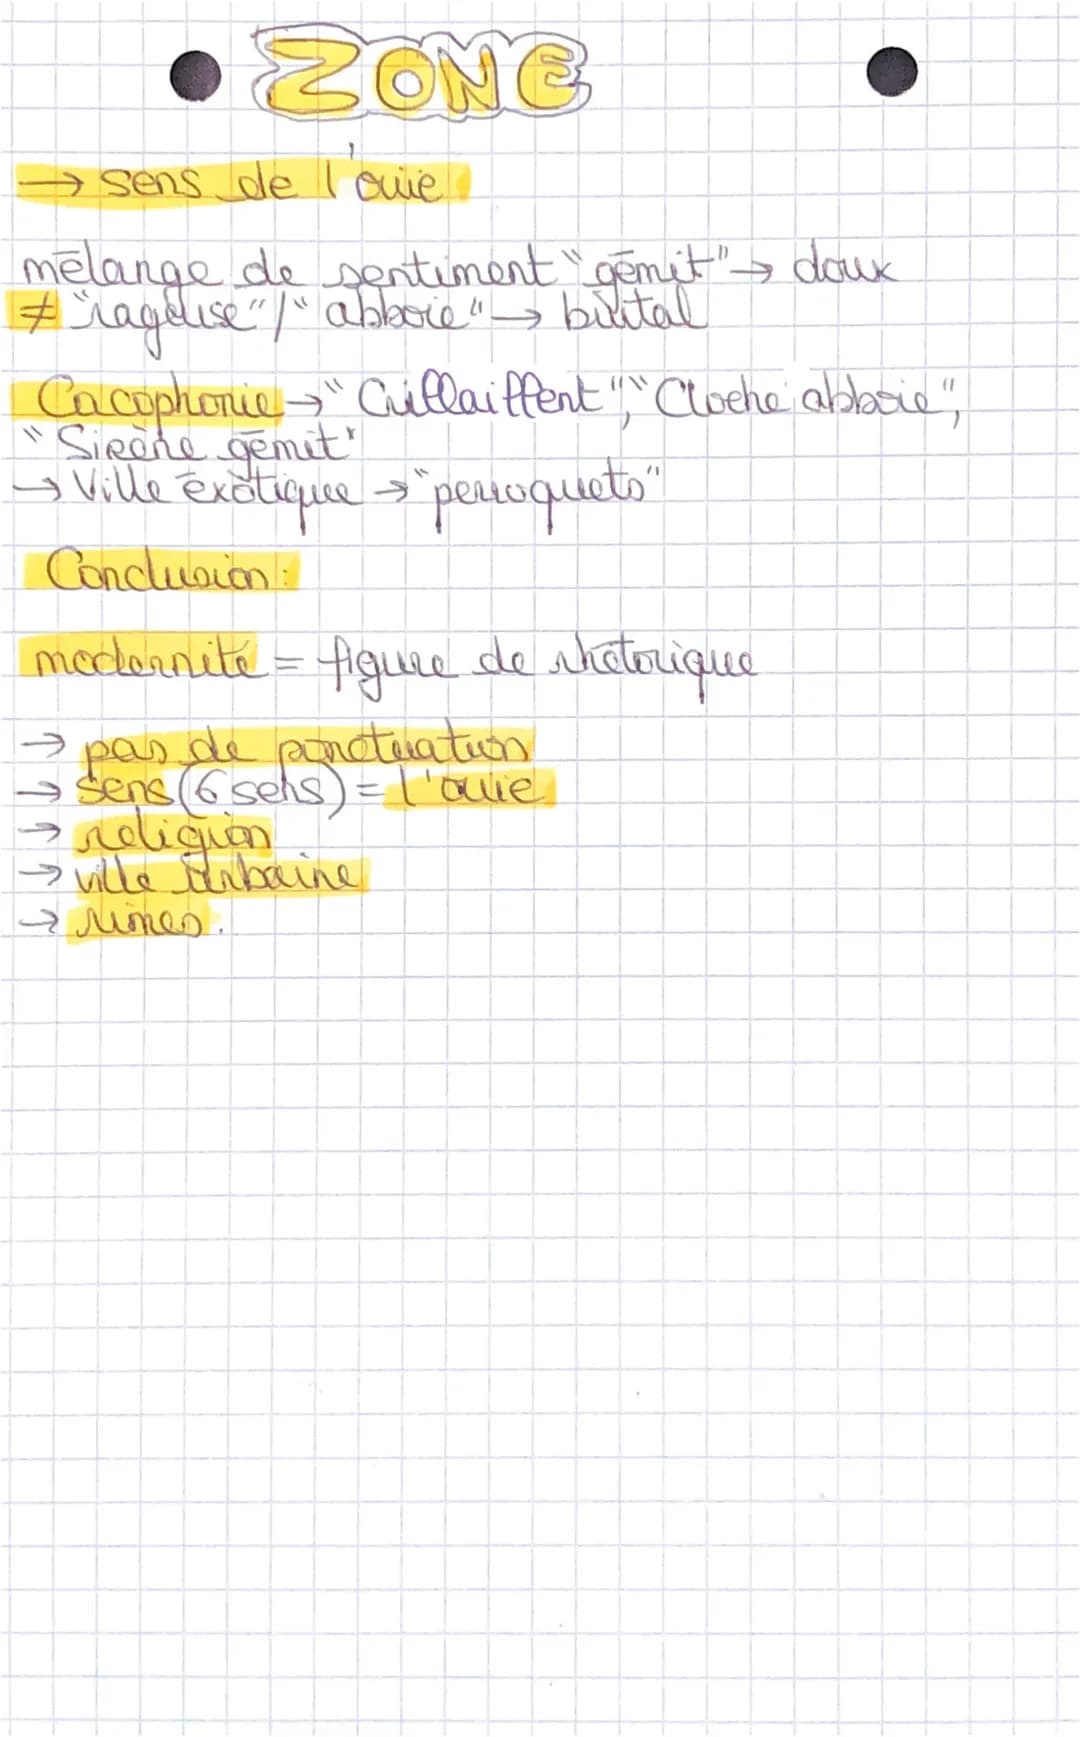 ZONE
→ sens de l'ouïe
mélange de sentiment "gémit" → doux
≠ "rageuse"/"abboie" → brutal
Cacophonie → "Crillaiffent", "Cloche abboie",
"Sirène gémit"
→ Ville éxotique → "perroquets"
Conclusion :
modernité = figure de rhétorique
→ pas de ponctuation
→ sens (6 sens) = l'ouïe
→ religion
→ ville urbaine
→ rimes.